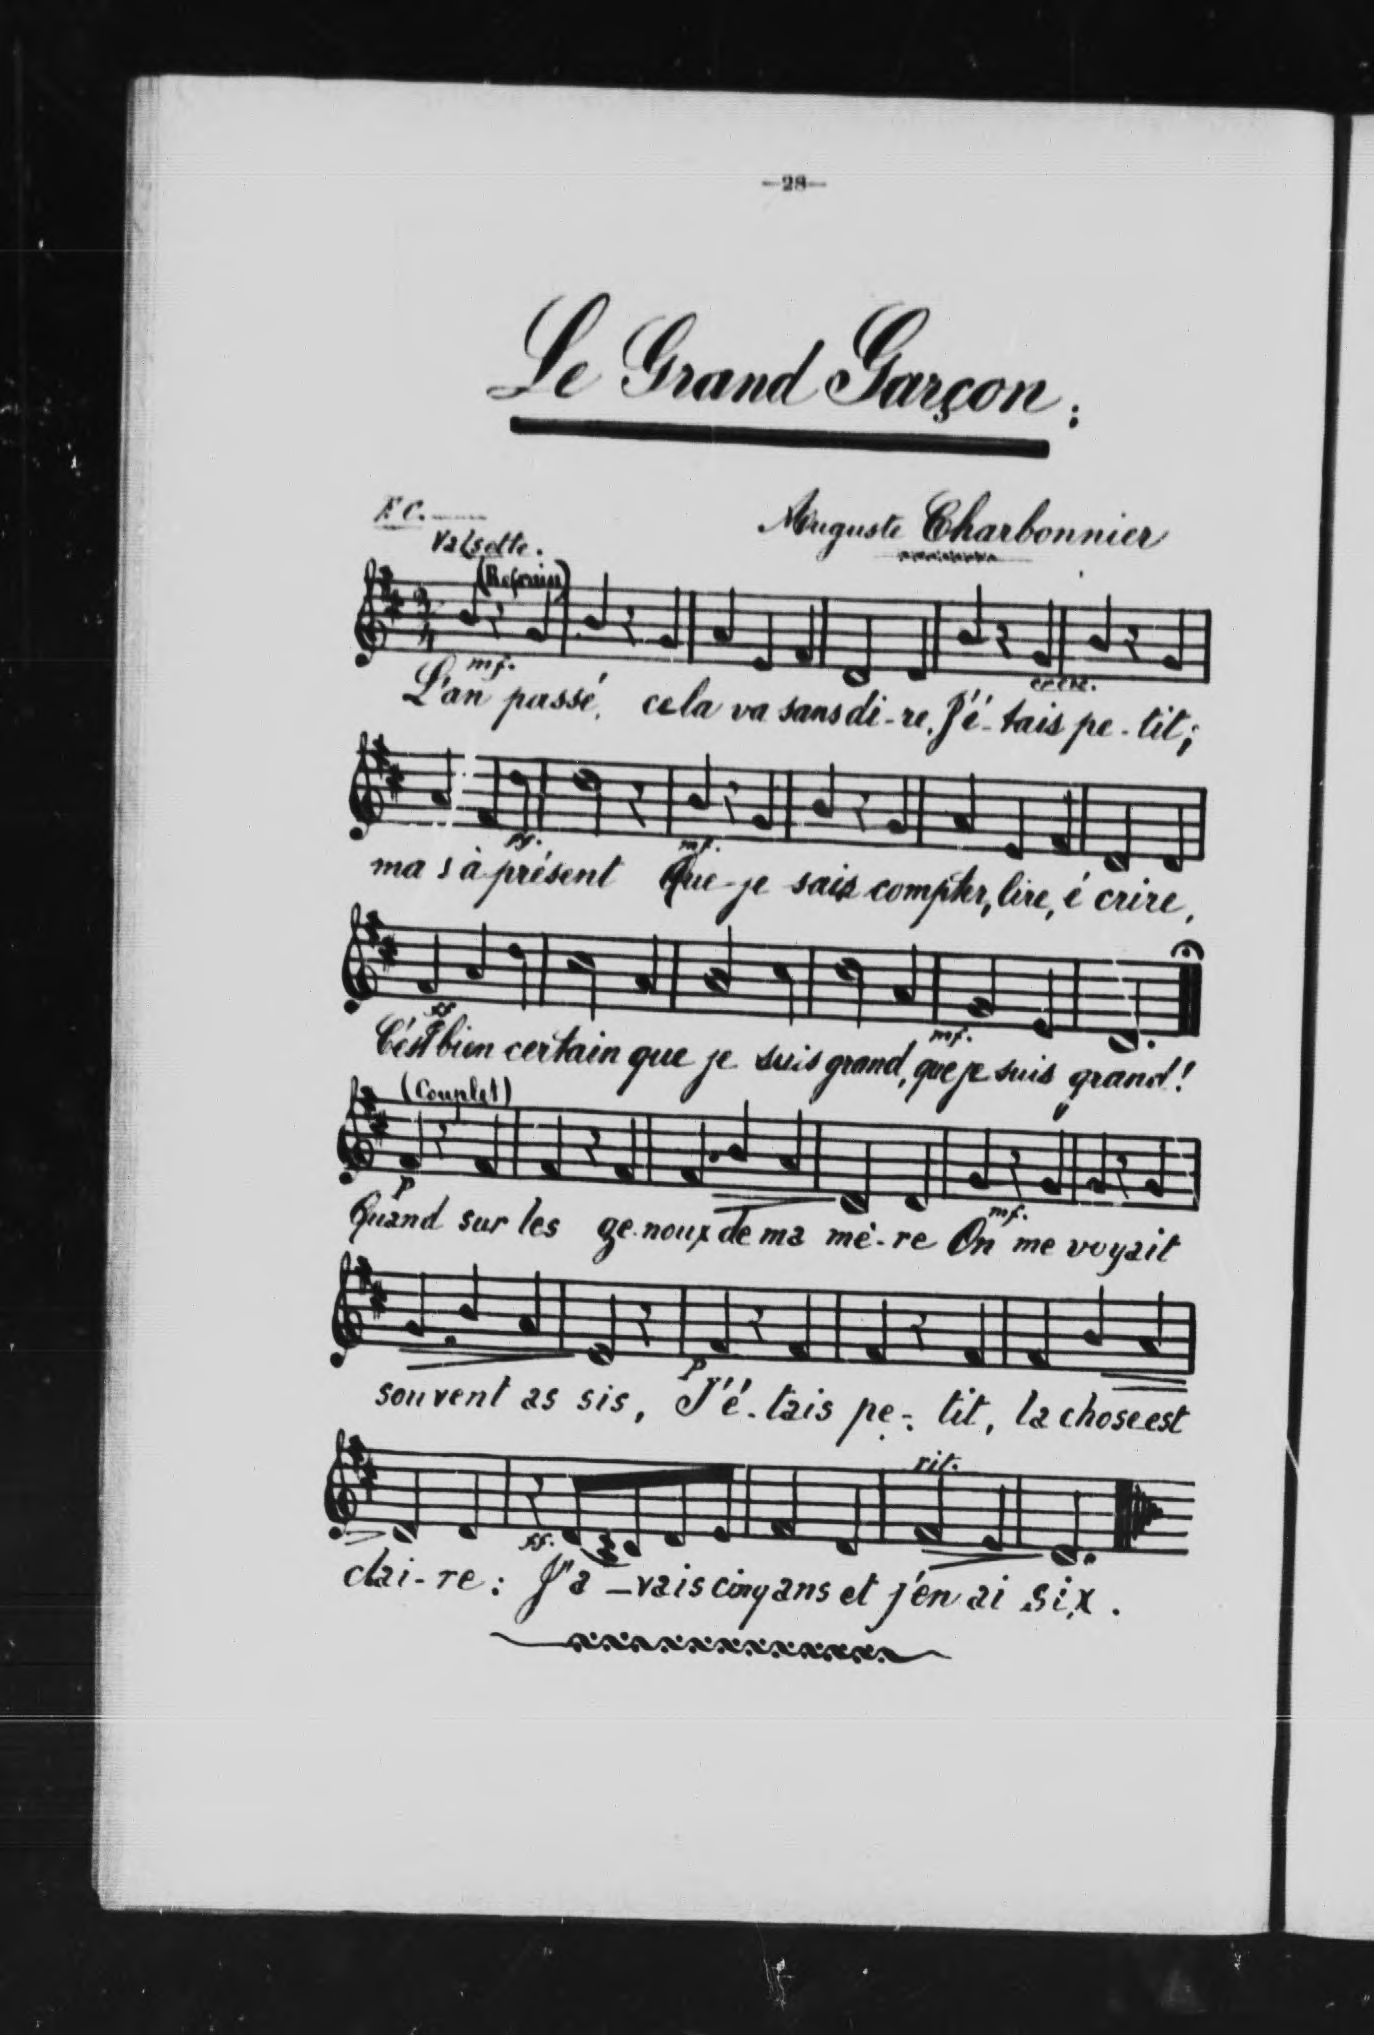 —28—
Le Grand Garçon;
F.C.
Auguste Charbonnier
Valsette.
(Refrain)
mf.
cresc.
L'an passé, cela va sans di-re, J'é-tais pe-tit;
ff. mf.
ma s à présent Que je sais compter, lire, é crire,
ff mf.
C'est bien certain que je suis grand, que je suis grand!
(Couplet)
P mf.
Quand sur les ge-noux de ma mè-re On me voyait
P
souvent as sis, J'é-tais pe-tit, la chose est
rit.
ff.
clai-re: J'a-vais cinq ans et j'en ai six.